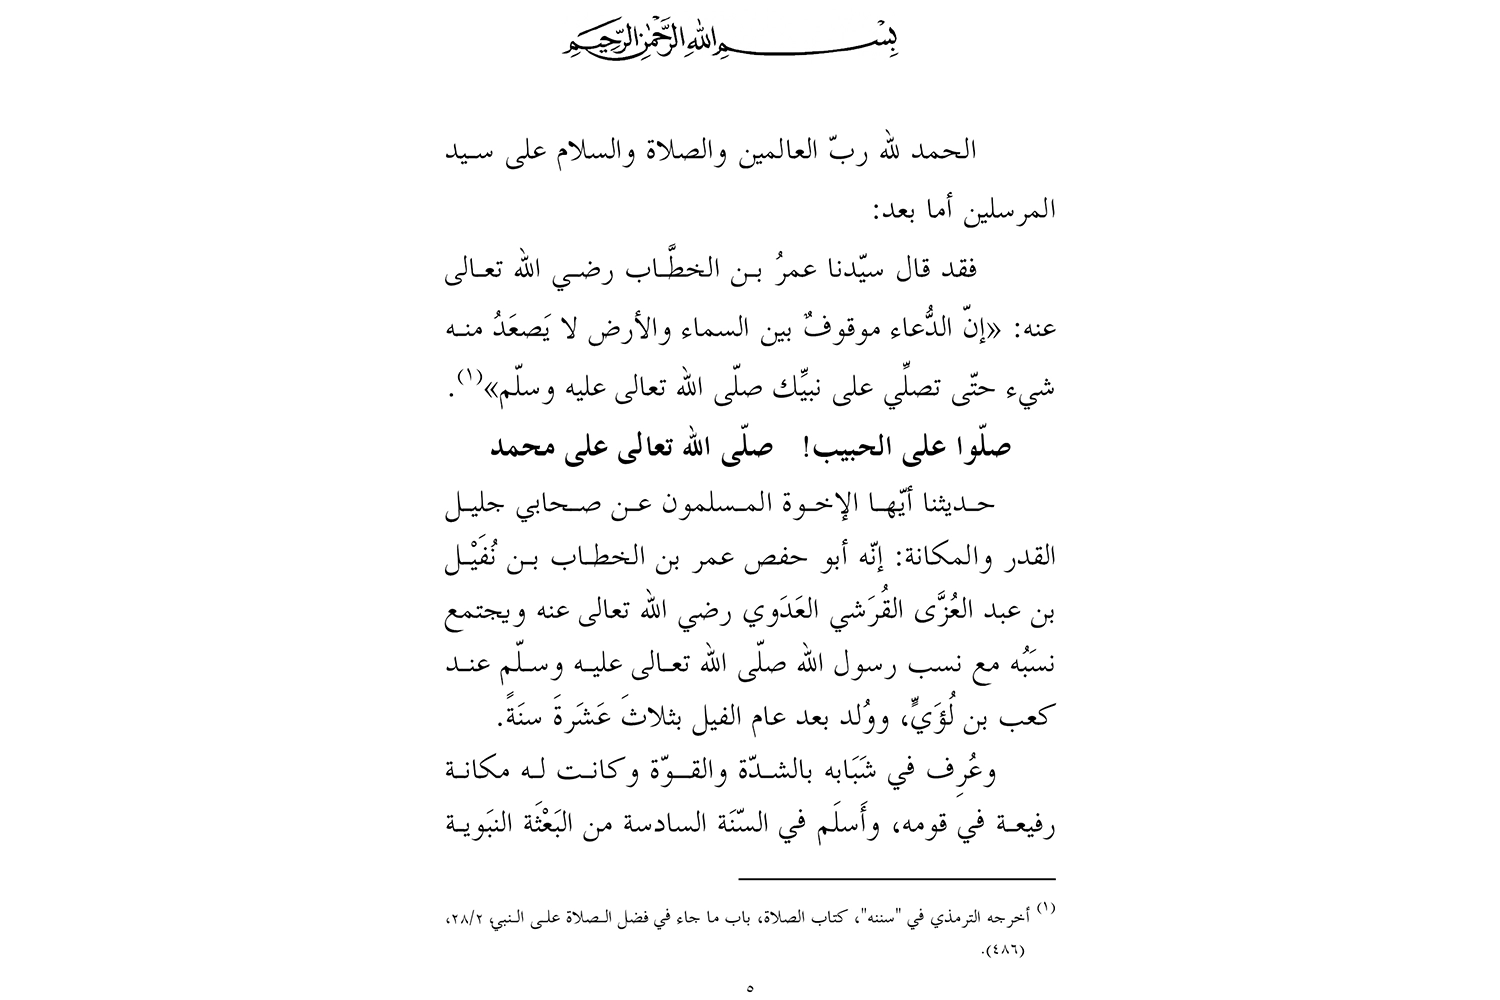 بِسْمِ اللهِ الرَّحْمٰنِ الرَّحِيْمِ
الحمد لله ربّ العالمين والصلاة والسلام على سيد
المرسلين أما بعد:
فقد قال سيّدنا عمرُ بن الخطَّاب رضي الله تعالى
عنه: «إنّ الدُّعاء موقوفٌ بين السماء والأرض لا يَصعَدُ منه
شيء حتّى تصلِّي على نبيِّك صلّى الله تعالى عليه وسلّم»(١).
صلّوا على الحبيب! صلّى الله تعالى على محمد
حديثنا أيّها الإخوة المسلمون عن صحابي جليل
القدر والمكانة: إنّه أبو حفص عمر بن الخطاب بن نُفَيْل
بن عبد العُزَّى القُرَشي العَدَوي رضي الله تعالى عنه ويجتمع
نسَبُه مع نسب رسول الله صلّى الله تعالى عليه وسلّم عند
كعب بن لُؤَيٍّ، ووُلد بعد عام الفيل بثلاثَ عَشَرةَ سنَةً.
وعُرِف في شَبَابه بالشدّة والقوّة وكانت له مكانة
رفيعة في قومه، وأَسلَم في السّنَة السادسة من البَعْثَة النبَوية
(١) أخرجه الترمذي في "سننه"، كتاب الصلاة، باب ما جاء في فضل الصلاة على النبي، ٢/٢٨،
(٤٨٦).
٥